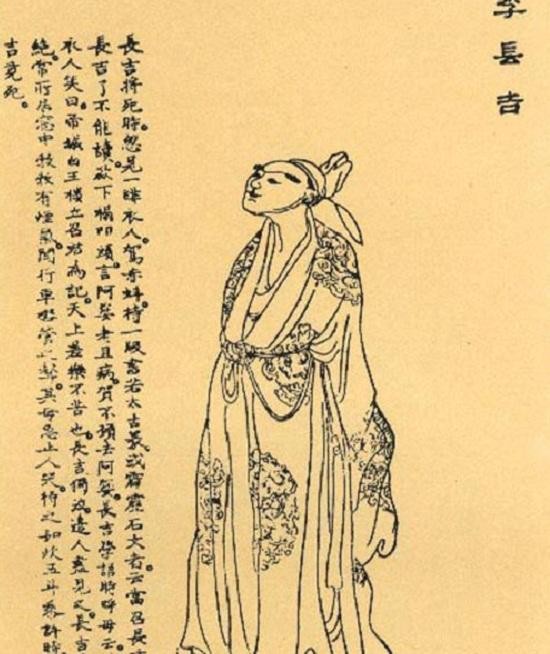 李長吉
長吉將死時。忽見一緋衣人。駕赤虬。持一版書若太古篆或霹靂石文者。云當召長
長吉了不能讀。欻下榻叩頭言阿㜷老且病。賀不願去。阿㜷。長吉學語時呼母云。
衣人笑曰。帝城白玉樓立召君為記。天上差樂不苦也。長吉獨泣。邊人盡見之。長吉
絕。常所居窗中。勃勃有煙氣。聞行車嘒管之聲。其母急止人哭。待之如炊五斗黍許時
吉竟死。